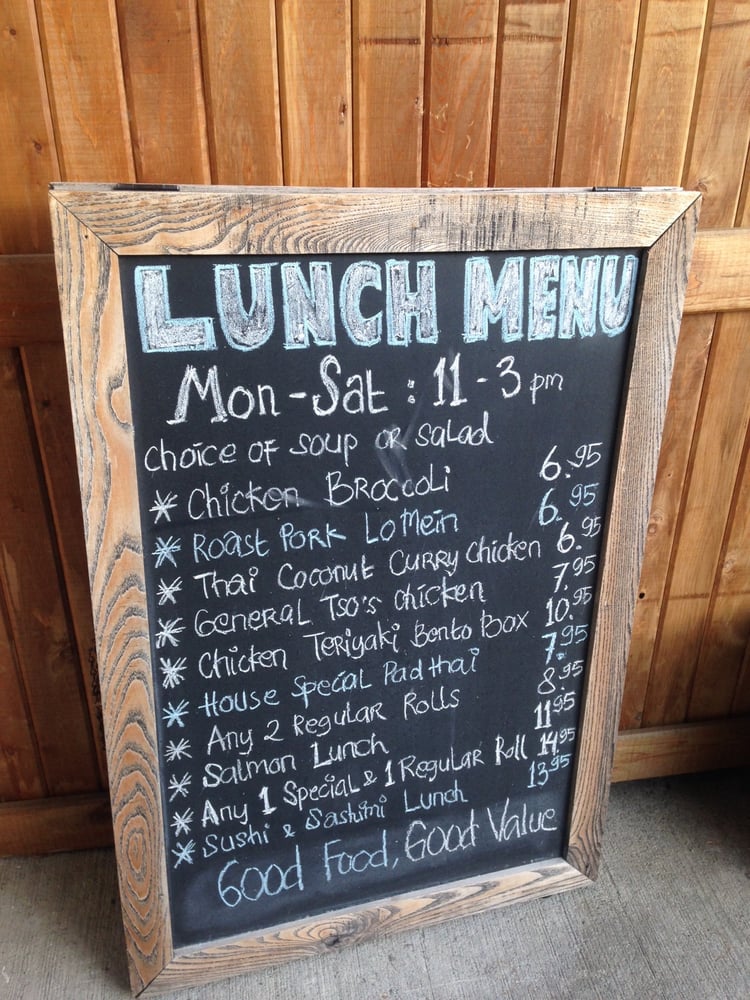 LUNCH MENU
Mon-Sat : 11-3 pm
choice of soup or salad
* Chicken Broccoli 6.95
* Roast Pork Lo Mein 6.95
* Thai Coconut Curry Chicken 6.95
* General Tso's chicken 7.95
* Chicken Teriyaki Bento Box 10.95
* House Special Pad thai 7.95
* Any 2 Regular Rolls 8.95
* Salmon Lunch 11.95
* Any 1 Special & 1 Regular Roll 14.95
* Sushi & Sashimi Lunch 13.95
Good Food, Good Value